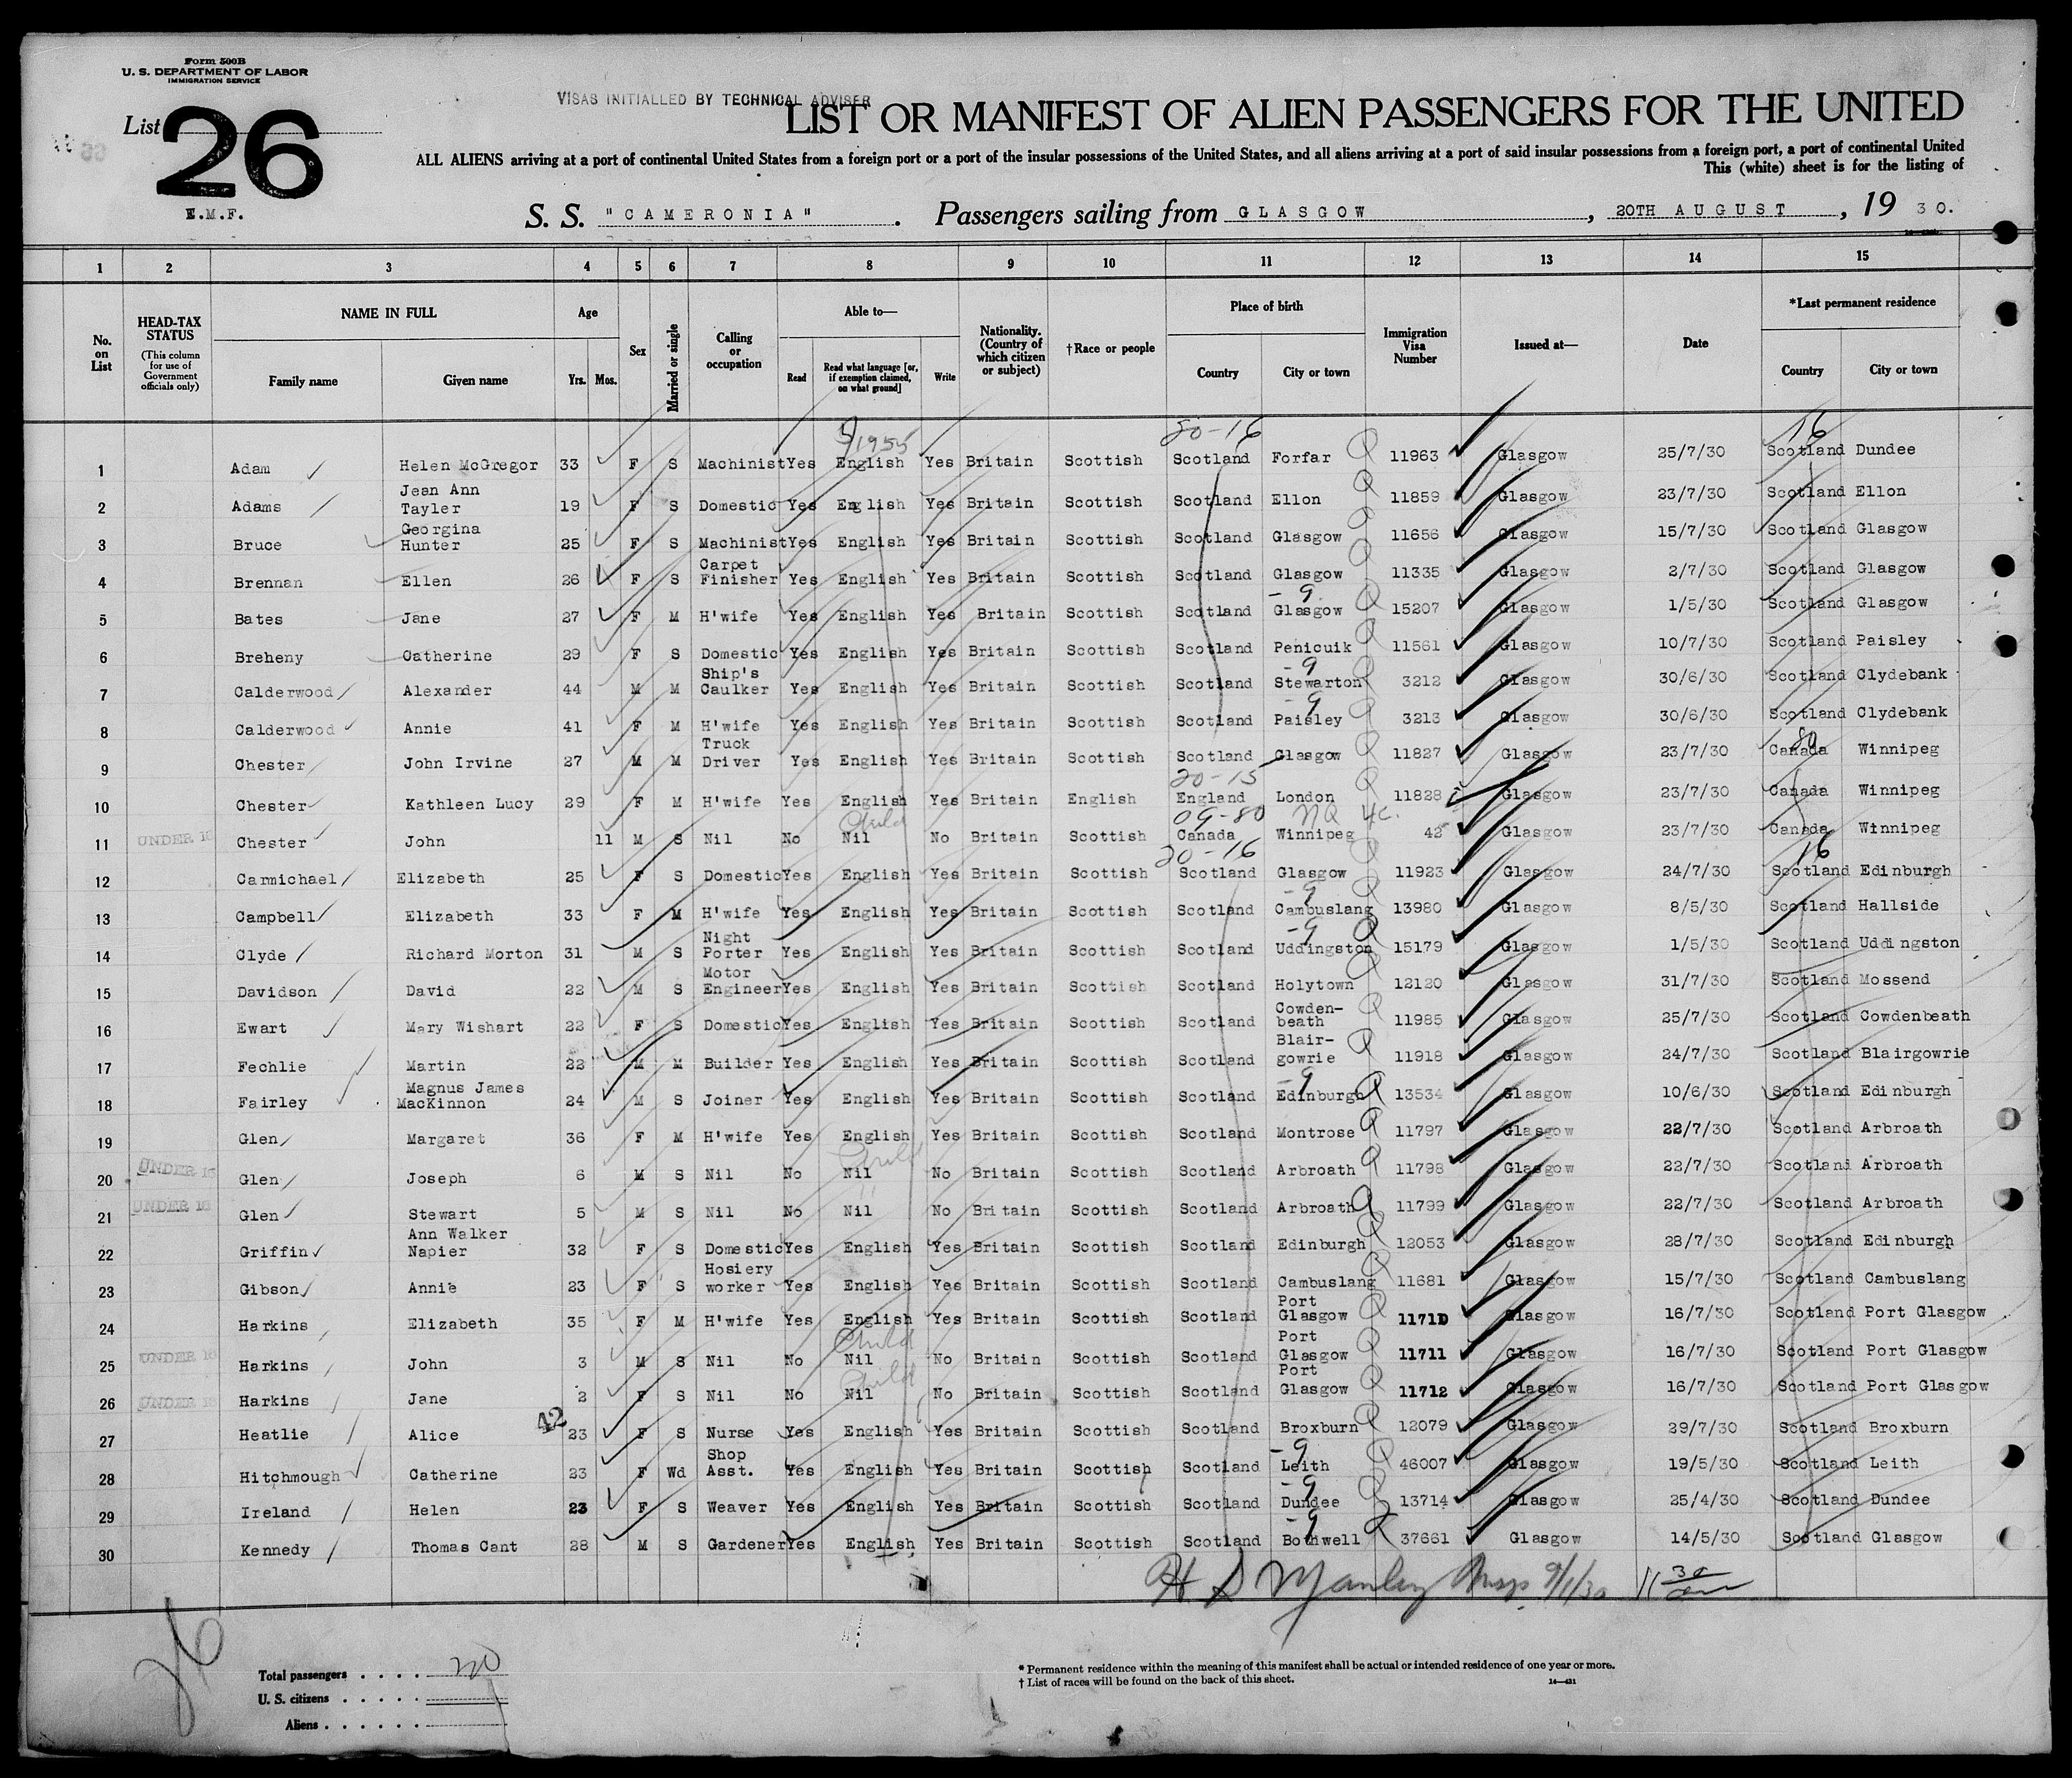 Form 500B
U. S. DEPARTMENT OF LABOR
IMMIGRATION SERVICE
VISAS INITIALLED BY TECHNICAL ADVISER
List 26
E.M.F.
LIST OR MANIFEST OF ALIEN PASSENGERS FOR THE UNITED
ALL ALIENS arriving at a port of continental United States from a foreign port or a port of the insular possessions of the United States, and all aliens arriving at a port of said insular possessions from a foreign port, a port of continental United
This (white) sheet is for the listing of
S. S. "CAMERONIA". Passengers sailing from GLASGOW, 20TH AUGUST, 19 30.
1 2 3 4 5 6 7 8 9 10 11 12 13 14 15
No. on List
HEAD-TAX STATUS (This column for use of Government officials only)
NAME IN FULL Family name Given name
Age Yrs. Mos.
Sex
Married or single
Calling or occupation
Able to— Read Read what language [or, if exemption claimed, on what ground] Write
Nationality. (Country of which citizen or subject)
†Race or people
Place of birth Country City or town
Immigration Visa Number
Issued at—
Date
*Last permanent residence Country City or town
9/1955 20-16 16
1 Adam Helen McGregor 33 F S Machinist Yes English Yes Britain Scottish Scotland Forfar 11963 Glasgow 25/7/30 Scotland Dundee
2 Adams Jean Ann Tayler 19 F S Domestic Yes English Yes Britain Scottish Scotland Ellon 11859 Glasgow 23/7/30 Scotland Ellon
3 Bruce Georgina Hunter 25 F S Machinist Yes English Yes Britain Scottish Scotland Glasgow 11656 Glasgow 15/7/30 Scotland Glasgow
4 Brennan Ellen 26 F S Carpet Finisher Yes English Yes Britain Scottish Scotland Glasgow 11335 Glasgow 2/7/30 Scotland Glasgow
-9
5 Bates Jane 27 F M H'wife Yes English Yes Britain Scottish Scotland Glasgow 15207 Glasgow 1/5/30 Scotland Glasgow
6 Breheny Catherine 29 F S Domestic Yes English Yes Britain Scottish Scotland Penicuik 11561 Glasgow 10/7/30 Scotland Paisley
-9
7 Calderwood Alexander 44 M M Ship's Caulker Yes English Yes Britain Scottish Scotland Stewarton 3212 Glasgow 30/6/30 Scotland Clydebank
-9
8 Calderwood Annie 41 F M H'wife Yes English Yes Britain Scottish Scotland Paisley 3213 Glasgow 30/6/30 Scotland Clydebank
80
9 Chester John Irvine 27 M M Truck Driver Yes English Yes Britain Scottish Scotland Glasgow 11827 Glasgow 23/7/30 Canada Winnipeg
20-15
10 Chester Kathleen Lucy 29 F M H'wife Yes English Yes Britain English England London 11828 Glasgow 23/7/30 Canada Winnipeg
Child 09-80 NQ 4c.
11 UNDER 16 Chester John 11 M S Nil No Nil No Britain Scottish Canada Winnipeg 42 Glasgow 23/7/30 Canada Winnipeg
20-16 16
12 Carmichael Elizabeth 25 F S Domestic Yes English Yes Britain Scottish Scotland Glasgow 11923 Glasgow 24/7/30 Scotland Edinburgh
-9
13 Campbell Elizabeth 33 F M H'wife Yes English Yes Britain Scottish Scotland Cambuslang 13980 Glasgow 8/5/30 Scotland Hallside
-9
14 Clyde Richard Morton 31 M S Night Porter Yes English Yes Britain Scottish Scotland Uddingston 15179 Glasgow 1/5/30 Scotland Uddingston
15 Davidson David 22 M S Motor Engineer Yes English Yes Britain Scottish Scotland Holytown 12120 Glasgow 31/7/30 Scotland Mossend
16 Ewart Mary Wishart 22 F S Domestic Yes English Yes Britain Scottish Scotland Cowden-beath 11985 Glasgow 25/7/30 Scotland Cowdenbeath
17 Fechlie Martin 22 M M Builder Yes English Yes Britain Scottish Scotland Blair-gowrie 11918 Glasgow 24/7/30 Scotland Blairgowrie
-9
18 Fairley Magnus James MacKinnon 24 M S Joiner Yes English Yes Britain Scottish Scotland Edinburgh 13534 Glasgow 10/6/30 Scotland Edinburgh
19 Glen Margaret 36 F M H'wife Yes English Yes Britain Scottish Scotland Montrose 11797 Glasgow 22/7/30 Scotland Arbroath
Child
20 UNDER 16 Glen Joseph 6 M S Nil No Nil No Britain Scottish Scotland Arbroath 11798 Glasgow 22/7/30 Scotland Arbroath
21 UNDER 16 Glen Stewart 5 M S Nil No Nil No Britain Scottish Scotland Arbroath 11799 Glasgow 22/7/30 Scotland Arbroath
22 Griffin Ann Walker Napier 32 F S Domestic Yes English Yes Britain Scottish Scotland Edinburgh 12053 Glasgow 28/7/30 Scotland Edinburgh
23 Gibson Annie 23 F S Hosiery worker Yes English Yes Britain Scottish Scotland Cambuslang 11681 Glasgow 15/7/30 Scotland Cambuslang
24 Harkins Elizabeth 35 F M H'wife Yes English Yes Britain Scottish Scotland Port Glasgow 11710 Glasgow 16/7/30 Scotland Port Glasgow
Child
25 UNDER 16 Harkins John 3 M S Nil No Nil No Britain Scottish Scotland Port Glasgow 11711 Glasgow 16/7/30 Scotland Port Glasgow
Child
26 UNDER 16 Harkins Jane 2 F S Nil No Nil No Britain Scottish Scotland Port Glasgow 11712 Glasgow 16/7/30 Scotland Port Glasgow
42
27 Heatlie Alice 23 F S Nurse Yes English Yes Britain Scottish Scotland Broxburn 12079 Glasgow 29/7/30 Scotland Broxburn
-9
28 Hitchmough Catherine 23 F Wd Shop Asst. Yes English Yes Britain Scottish Scotland Leith 46007 Glasgow 19/5/30 Scotland Leith
-9
29 Ireland Helen 23 F S Weaver Yes English Yes Britain Scottish Scotland Dundee 13714 Glasgow 25/4/30 Scotland Dundee
-9
30 Kennedy Thomas Cant 28 M S Gardener Yes English Yes Britain Scottish Scotland Bothwell 37661 Glasgow 14/5/30 Scotland Glasgow
H S Manley Insp 9/1/30 11 30 am
26
Total passengers . . . .
U. S. citizens . . . . .
Aliens . . . . . .
* Permanent residence within the meaning of this manifest shall be actual or intended residence of one year or more.
† List of races will be found on the back of this sheet.
14—431